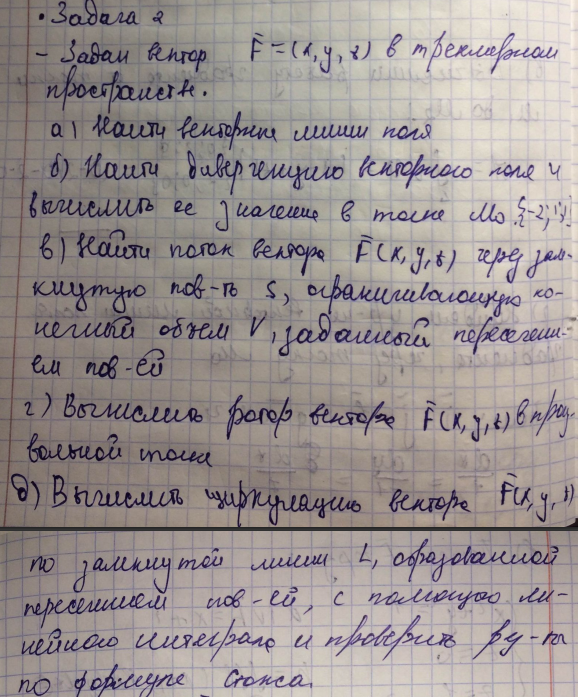 • Задача 2
- Задан вектор F̄ = (x, y, z) в трехмерном
пространстве.
а) Найти векторные линии поля
б) Найти дивергенцию векторного поля и
вычислить ее значение в точке M₀
в) Найти поток вектора F̄(x, y, z) через зам-
кнутую пов-ть S, ограничивающую ко-
нечный объем V, заданный пересечени-
ем пов-ей
г) Вычислить ротор вектора F̄(x, y, z) в прои-
вольной точке
д) Вычислить циркуляцию вектора F̄(x, y, z)
по замкнутой линии L, образованной
пересечением пов-ей, с помощью ли-
нейного интеграла и проверить ру-ты
по формуле Стокса.